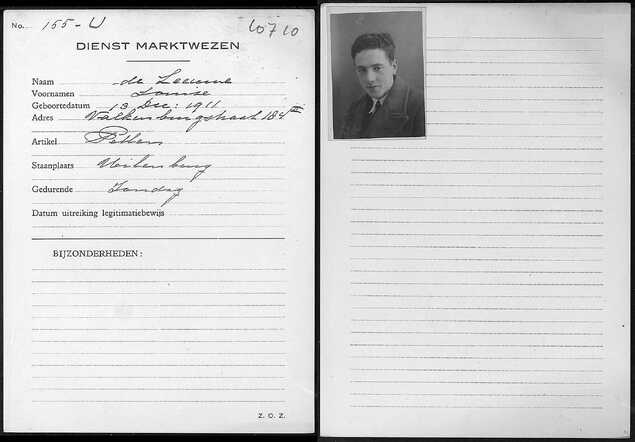 No. 155-U 10710
DIENST MARKTWEZEN
Naam de Leeuwe
Voornamen Louise
Geboortedatum 13 Dec: 1911
Adres Valkenburgstraat 184 III
Artikel Petten
Staanplaats Uilenburg
Gedurende Zondag
Datum uitreiking legitimatiebewijs
BIJZONDERHEDEN:
Z. O. Z.